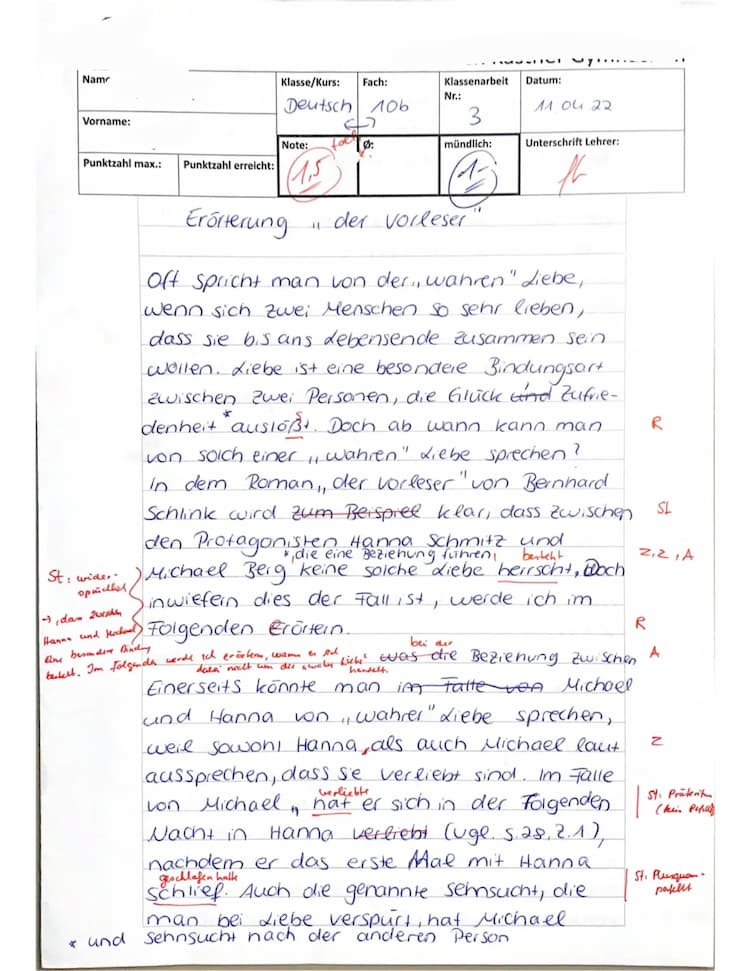 Name
Vorname:
Punktzahl max.:
Punktzahl erreicht:
Klasse/Kurs:
Deutsch
Fach:
10b
Klassenarbeit Nr.:
3
Datum:
11 04 22
Note:
1,5
Ø:
mündlich:
1-
Unterschrift Lehrer:
Erörterung „der Vorleser"
Oft spricht man von der „wahren" Liebe,
wenn sich zwei Menschen so sehr lieben,
dass sie bis ans Lebensende zusammen sein
wollen. Liebe ist eine besondere Bindungsart
zwischen zwei Personen, die Glück und Zufrie-
denheit * auslößt. Doch ab wann kann man R
von solch einer „wahren" Liebe sprechen?
In dem Roman „der Vorleser" von Bernhard
Schlink wird zum Beispiel klar, dass zwischen SL
den Protagonisten Hanna Schmitz und
*, die eine Beziehung führen, besteht Z, Z, A
Michael Berg keine solche Liebe herrscht, Doch
St: wider-
sprüchlich
inwiefern dies der Fall ist, werde ich im
→, dass zwischen
Hanna und Michael
eine besondere Bindung
besteht. Im Folgenden werde ich erörtern, wann es sich
dabei nicht um die „wahre Liebe" handelt.
Folgenden Erörtern. R
bei der
was die Beziehung zwischen A
Einerseits könnte man im Falle von Michael
und Hanna von „wahrer" Liebe sprechen,
weil sowohl Hanna, als auch Michael laut Z
aussprechen, dass sie verliebt sind. Im Falle
verliebte
von Michael „hat er sich in der Folgenden St: Präteritum
(kein Perfekt)
Nacht in Hanna verliebt (vgl. S.28, Z.1),
nachdem er das erste Mal mit Hanna
geschlafen hatte
schlief. Auch die genannte Sehnsucht, die St: Plusquam-
perfekt
man bei Liebe verspürt, hat Michael
* und Sehnsucht nach der anderen Person